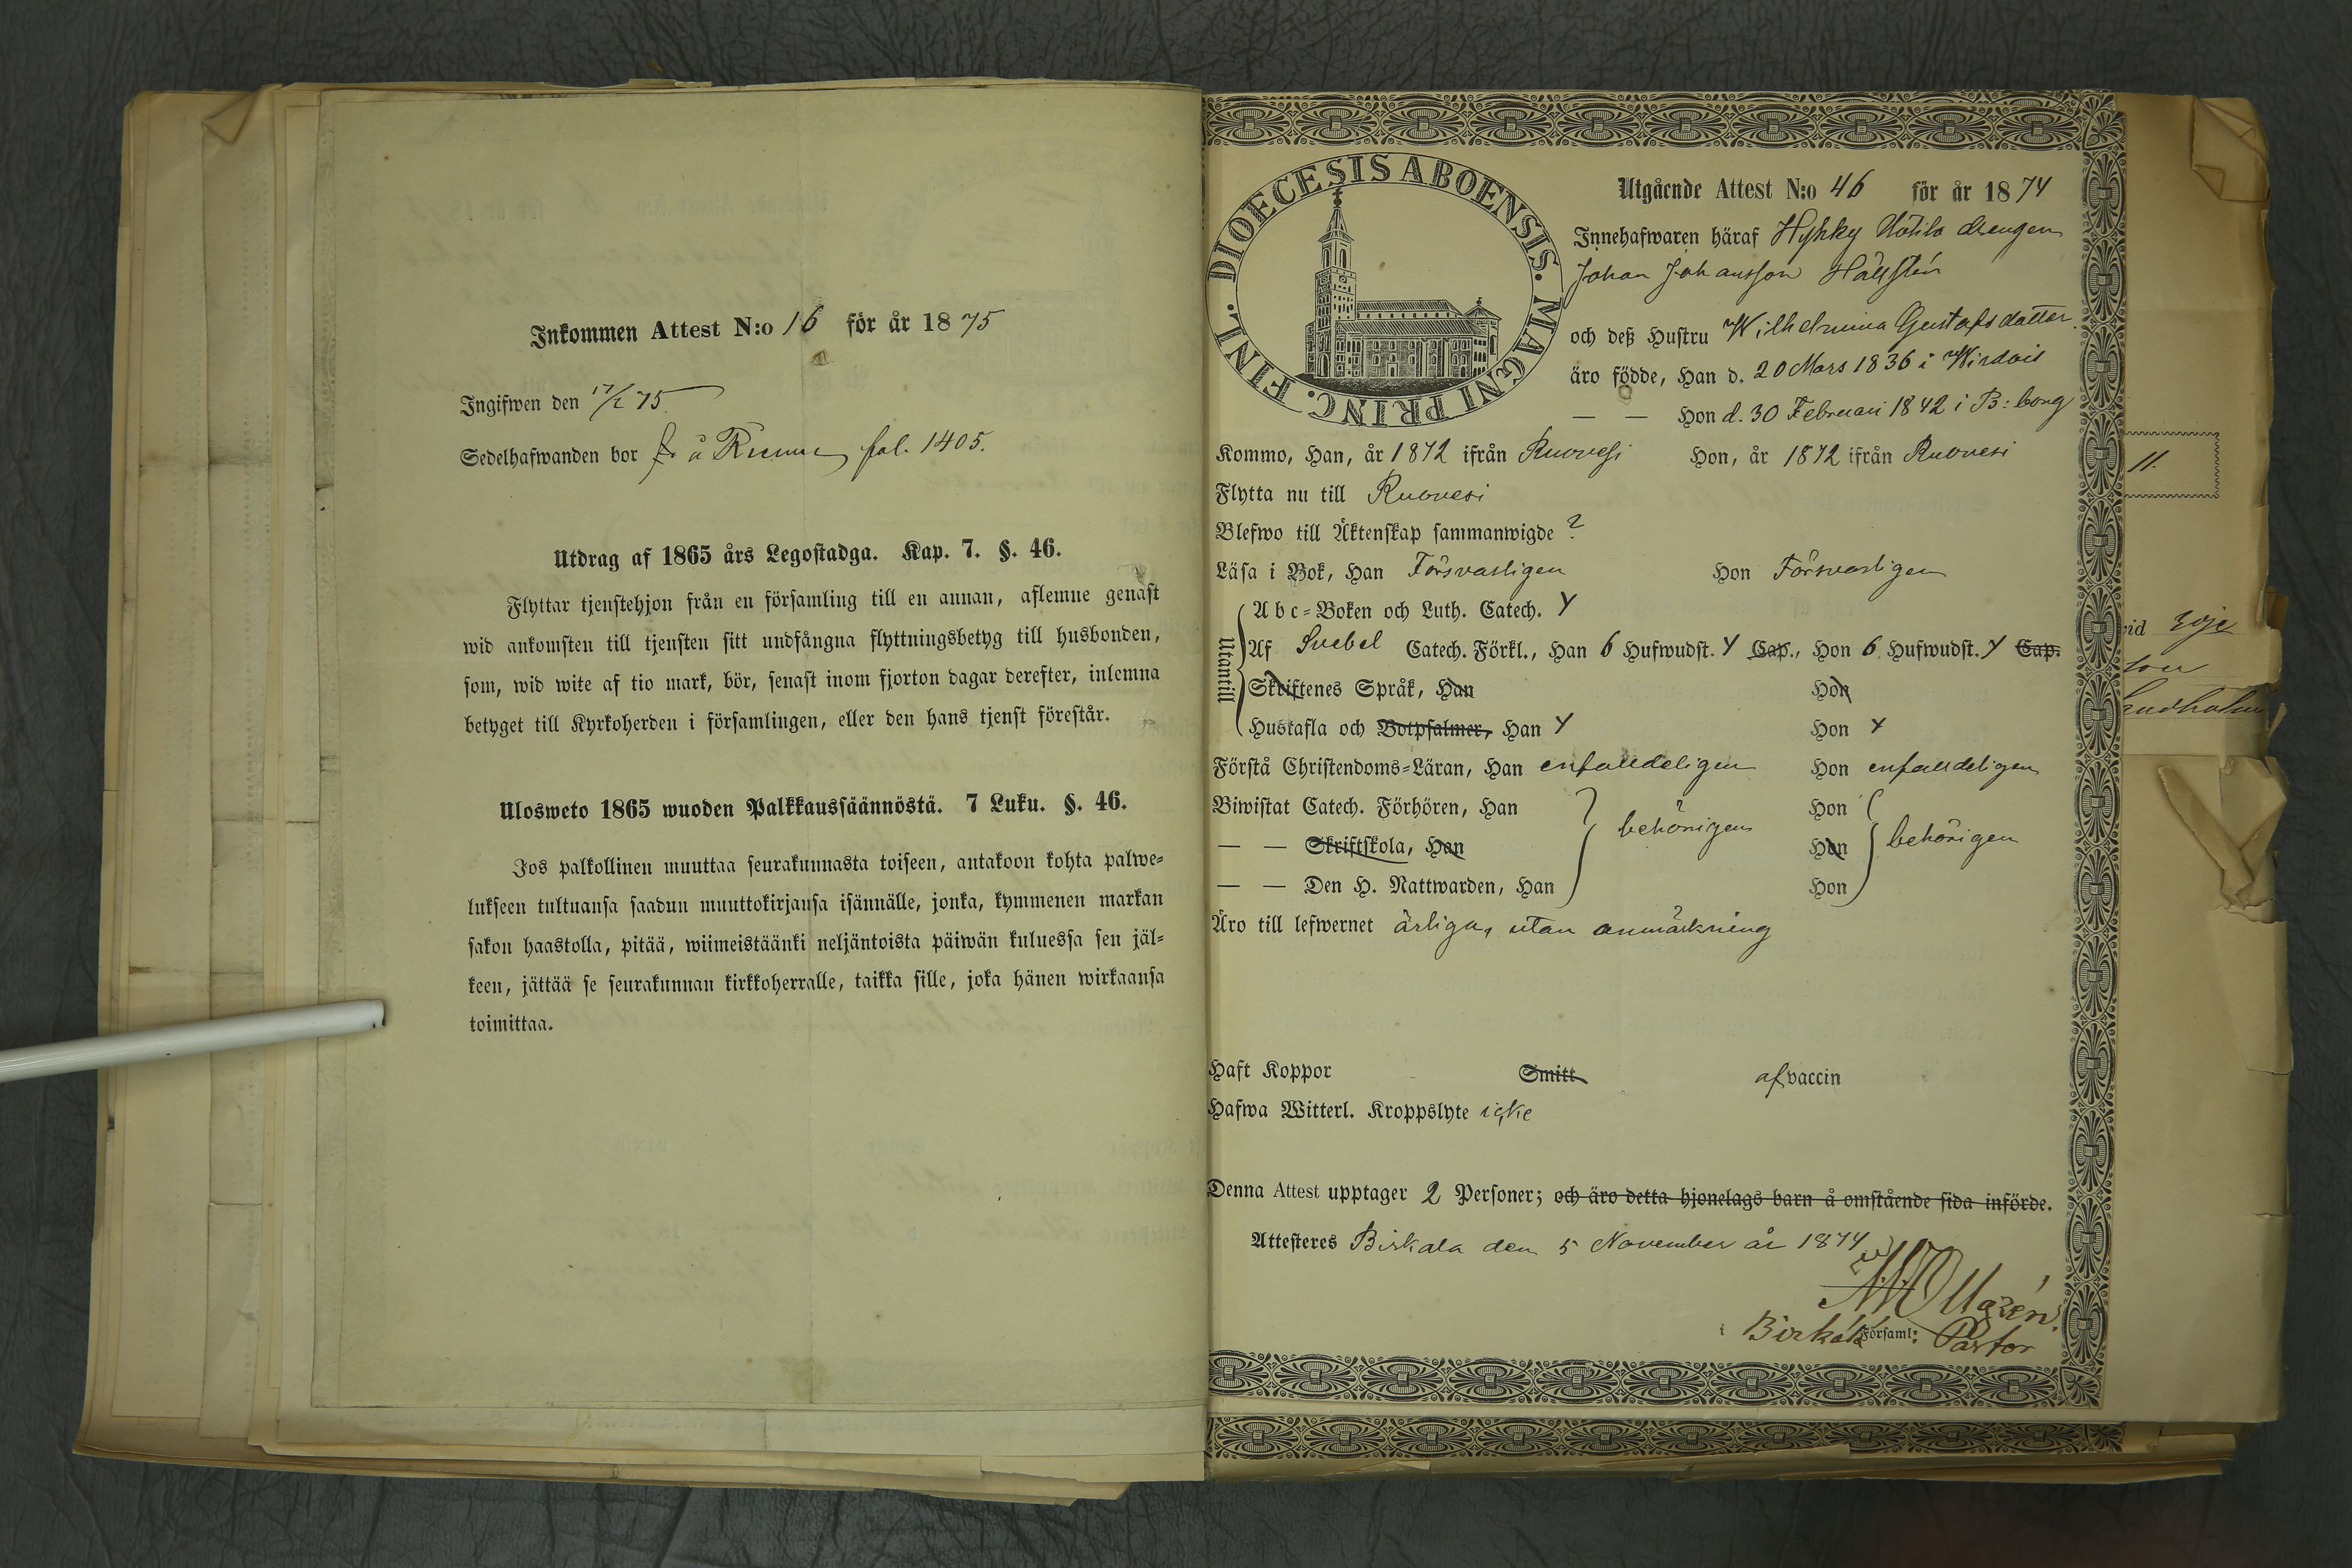 Inkommen Attest N:o 16 för år 1875
Ingifwen den 17/2 75.
Sedelhafwanden bor å fol. 1405.
Utdrag af 1865 års Legostadga. Kap. 7. §. 46.
Flyttar tjenstehjon från en församling till en annan, aflemne genast
wid ankomsten till tjensten sitt undfångna flyttningsbetyg till husbonden,
som, wid wite af tio mark, bör, senast inom fjorton dagar derefter, inlemna
betyget till Kyrkoherden i församlingen, eller den hans tjenst förestår.
Ulosweto 1865 wuoden Palkkaussäännöstä. 7 Luku. §. 46.
Jos palkollinen muuttaa seurakunnasta toiseen, antakoon kohta palwe-
lukseen tultuansa saadun muuttokirjansa isännälle, jonka, kymmenen markan
sakon haastolla, pitää, wiimeistäänki neljäntoista päiwän kuluessa sen jäl-
keen, jättää se seurakunnan kirkkoherralle, taikka sille, joka hänen wirkaansa
toimittaa.
DIOECESIS ABOENSIS. MAGNI PRINC. FINL.
Utgående Attest N:o 46 för år 1874
Innehafwaren häraf Hyhky drengen
Johan Johansson Hällstén
och deß Hustru Wilhelmina Gustafsdotter.
äro födde, Han d. 20 Mars 1836 i Wirdois
— — Hon d. 30 Februari 1842 i B:borg
Kommo, Han, år 1872 ifrån Ruovesi Hon, år 1872 ifrån Ruovesi
Flytta nu till Ruovesi
Blefwo till Äktenskap sammanwigde ?
Läsa i Bok, Han Försvarligen Hon Försvarligen
Utantill
Abc-Boken och Luth. Catech. Y
Af Svebel Catech. Förkl., Han 6 Hufwudst. Y Cap., Hon 6 Hufwudst. Y Cap.
Skriftenes Språk, Han Hon
Hustafla och Botpsalmer, Han Y Hon Y
Förstå Christendoms-Läran, Han enfaldeligen Hon enfaldeligen
Biwistat Catech. Förhören, Han behörigen Hon behörigen
— — Skriftskola, Han Hon
— — Den H. Nattwarden, Han Hon
Äro till lefwernet ärliga, utan anmärkning
Haft Koppor Smitt af vaccin
Hafwa Witterl. Kroppslyte icke
Denna Attest upptager 2 Personer; och äro detta hjonelags barn å omstående sida införde.
Attesteres Birkala den 5 November år 1874
i Birkala Församl: Pastor
11.